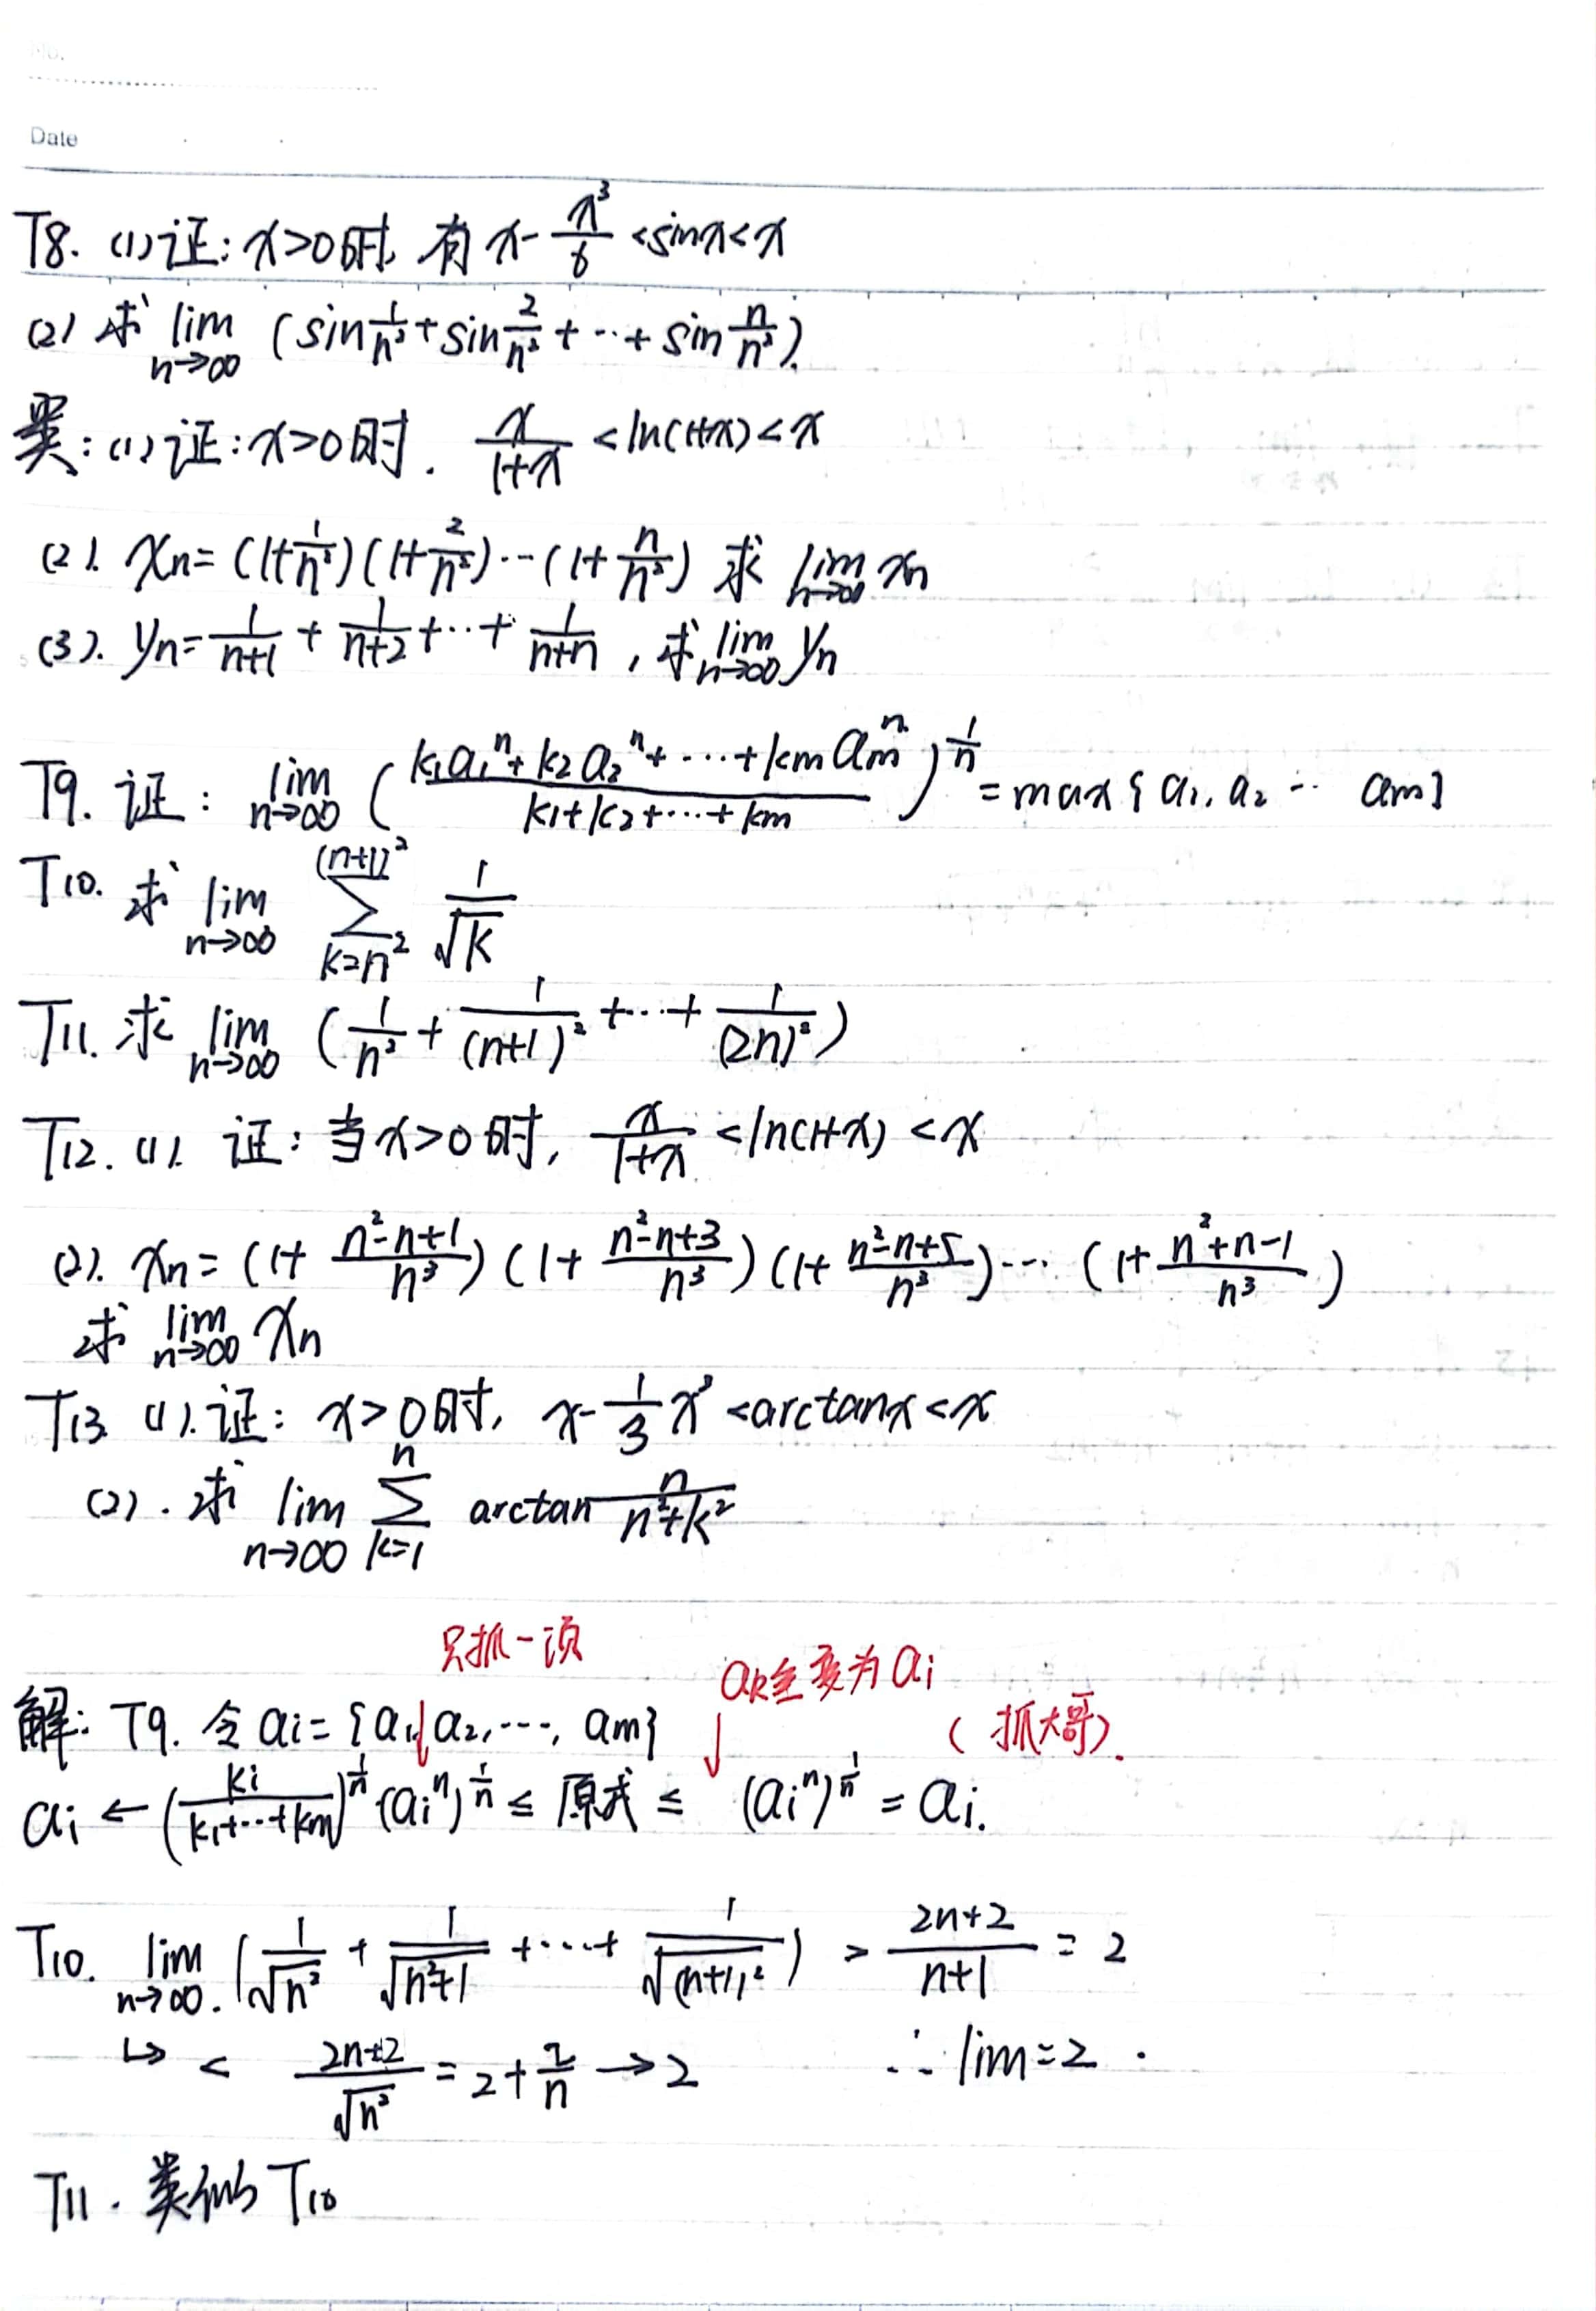 No.
Date
T8. (1) 证: x>0时, 有 x - x³/6 < sinx < x
(2) 求 lim n→∞ (sin 1/n² + sin 2/n² + ··· + sin n/n²).
类: (1) 证: x>0时. x/(1+x) < ln(1+x) < x
(2). xn = (1+1/n²)(1+2/n²)···(1+n/n²) 求 lim n→∞ xn
(3). yn = 1/(n+1) + 1/(n+2) + ··· + 1/(n+n), 求 lim n→∞ yn
T9. 证: lim n→∞ ((k₁a₁ⁿ + k₂a₂ⁿ + ··· + kmamⁿ)/(k₁+k₂+···+km))^(1/n) = max{a₁, a₂ ··· am}
T10. 求 lim n→∞ ∑ k=n² (n+1)² 1/√k
T11. 求 lim n→∞ (1/n² + 1/(n+1)² + ··· + 1/(2n)²)
T12. (1). 证: 当x>0时, x/(1+x) < ln(1+x) < x
(2). xn = (1+ (n²-n+1)/n³)(1+ (n²-n+3)/n³)(1+ (n²-n+5)/n³)···(1+ (n²+n-1)/n³)
求 lim n→∞ xn
T13. (1). 证: x>0时, x - 1/3 x³ < arctanx < x
(2). 求 lim n→∞ ∑ k=1 n arctan n/(n²+k²)
只抓一项
ak全变为ai
(抓大哥).
解: T9. 令 ai = {a₁, a₂, ···, am}
ai ← (ki/(k₁+···+km))^(1/n) (aiⁿ)^(1/n) ≤ 原式 ≤ (aiⁿ)^(1/n) = ai.
T10. lim n→∞. (1/√n² + 1/√(n²+1) + ··· + 1/√(n+1)²) > (2n+2)/(n+1) = 2
↳ < (2n+2)/√n² = 2 + 2/n → 2 ∴ lim = 2.
T11. 类似 T10